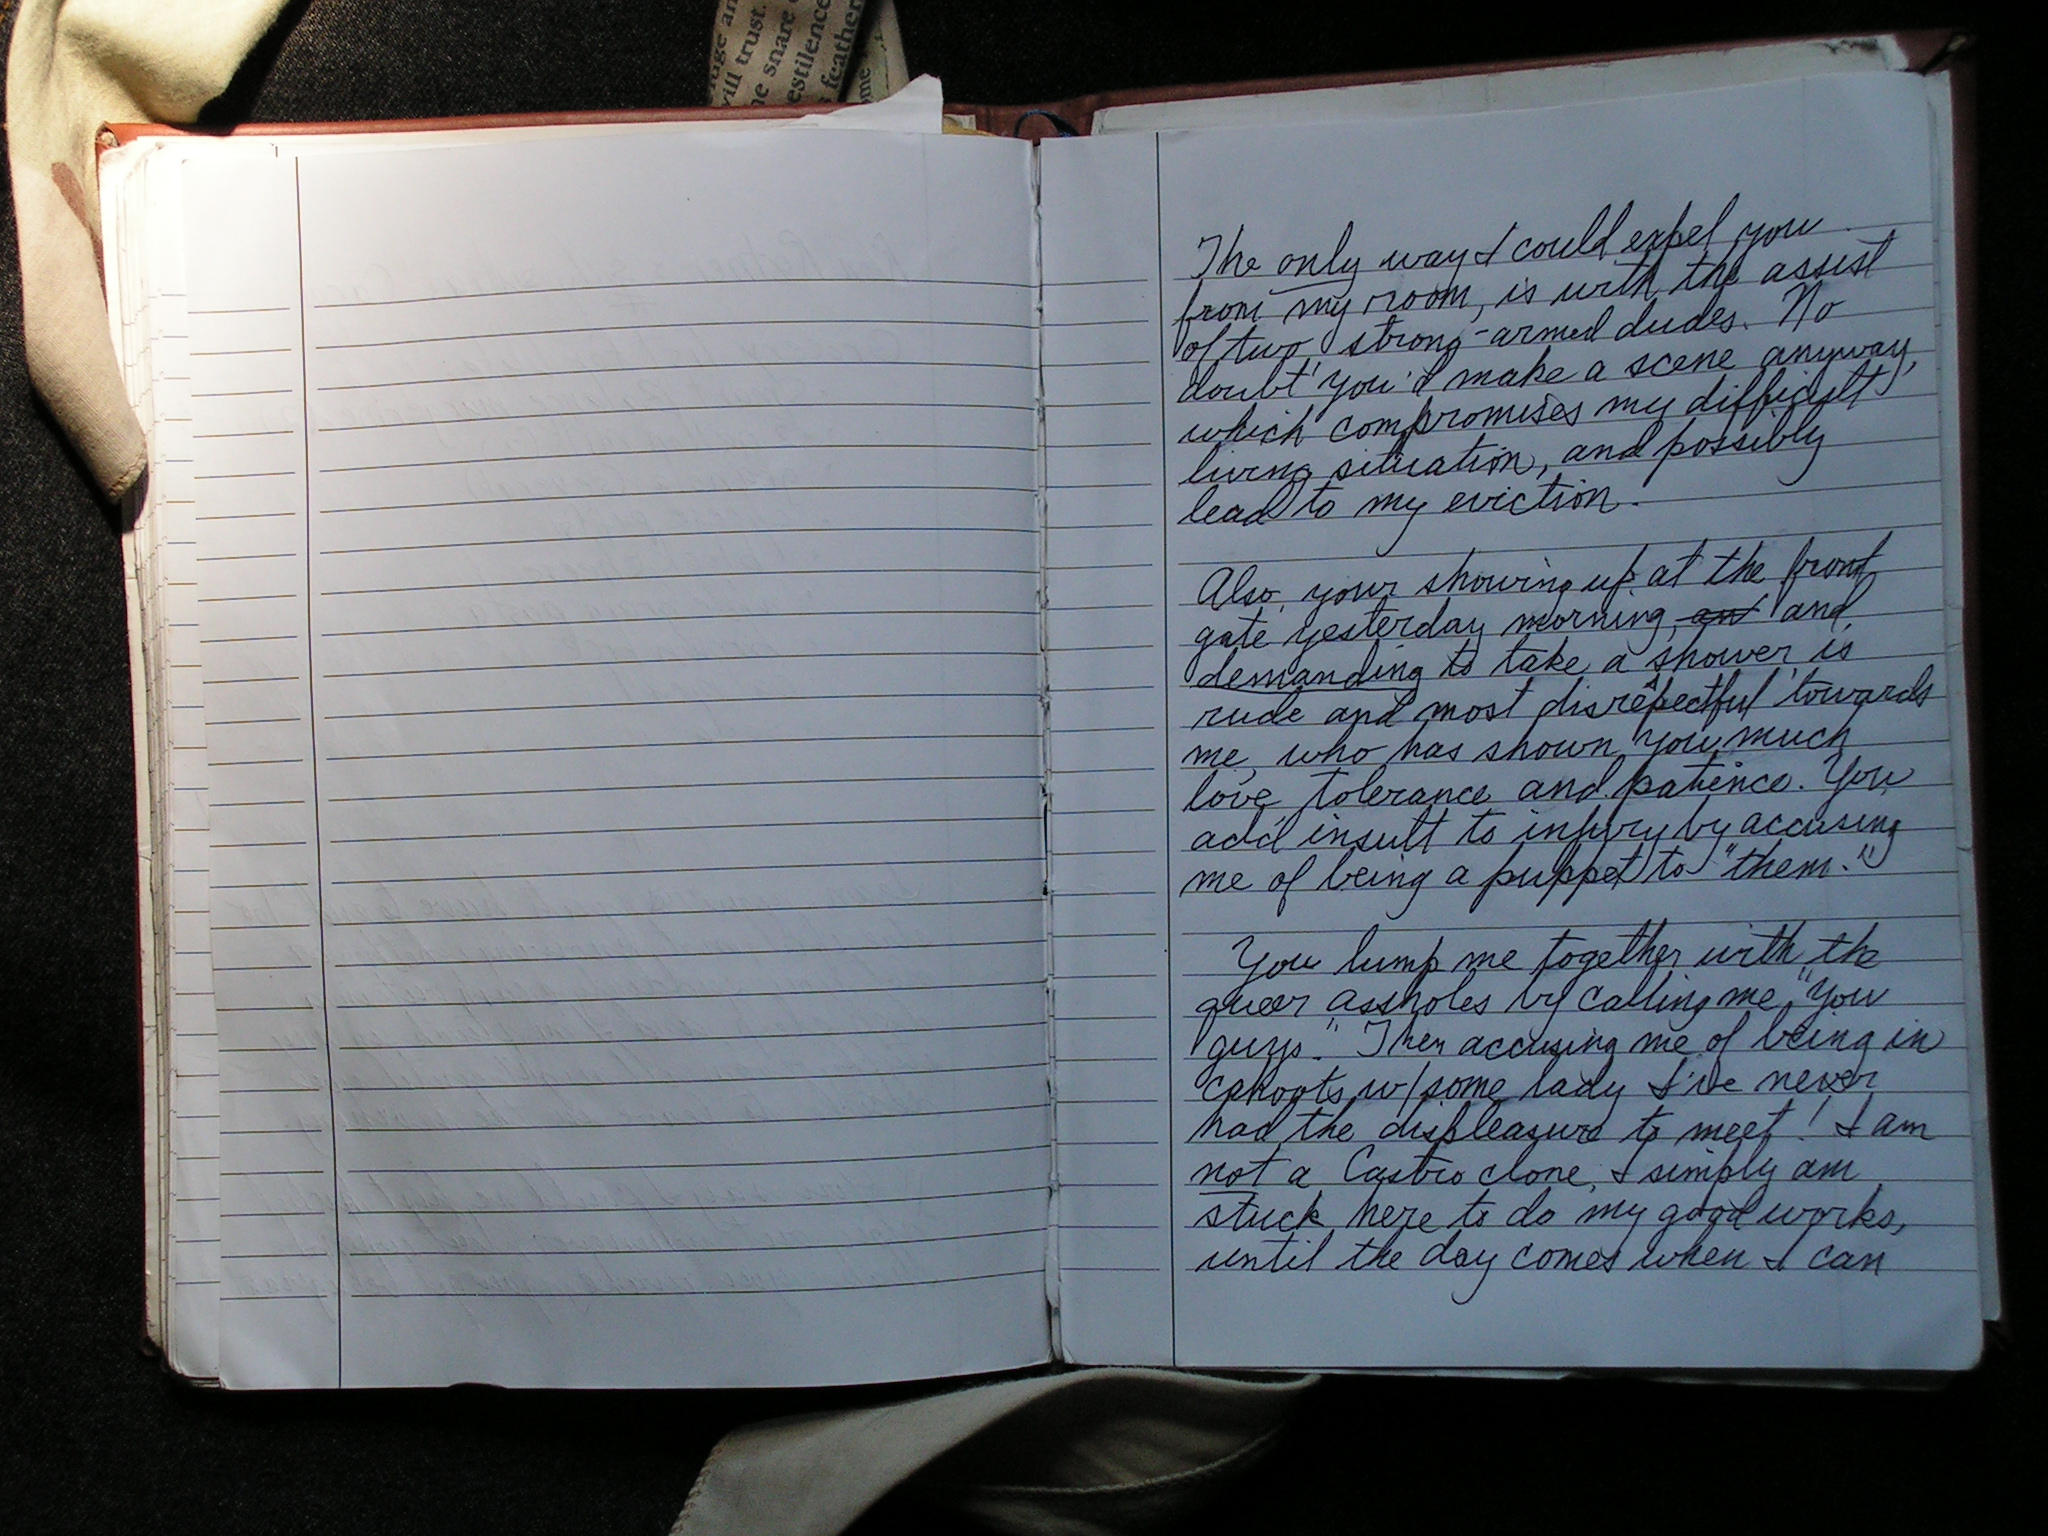 uge an
will trust.
he snare
estilence
feather
ome
The only way I could expel you
from my room, is with the assist
of two strong-armed dudes. No
doubt you'd make a scene anyway,
which compromises my difficult
living situation, and possibly
lead to my eviction.
Also, your showing up at the front
gate yesterday morning, an and
demanding to take a shower, is
rude and most disrepectful towards
me, who has shown you much
love, tolerance and patience. You
add insult to injury by accusing
me of being a puppet to "them."
You lump me together with the
queer assholes by calling me "You
guys." Then accusing me of being in
cahoots w/some lady I've never
had the displeasure to meet! I am
not a Castro clone, I simply am
stuck here to do my good works,
until the day comes when I can